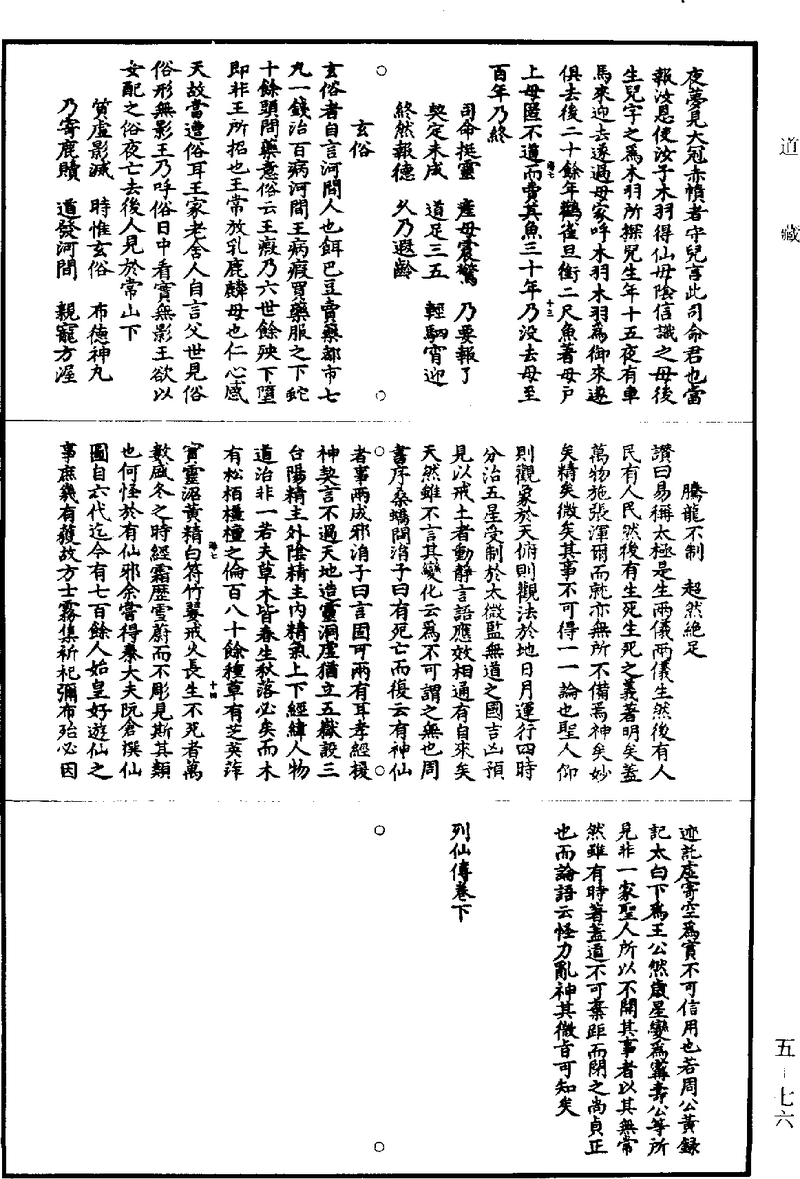 道藏
夜夢見大冠赤幘者守兒言此司命君也當
報汝恩使汝子木羽得仙母陰信識之母後
生兒字之為木羽所探兒生年十五夜有車
馬來迎去遂過母家呼木羽木羽為御來遂
俱去後二十餘年鸛雀旦銜二尺魚著母戶
上母匿不道而賣其魚三十年乃沒去母至
百年乃終
司命挺靈 產母震驚 乃要報了
契定未成 道足三五 輕駟宵迎
終然報德 久乃遐齡
玄俗
玄俗者自言河間人也餌巴豆賣藥都市七
丸一錢治百病河間王病瘕買藥服之下蛇
十餘頭問藥意俗云王瘕乃六世餘殃下墮
即非王所招也王常放乳鹿麟母也仁心感
天故當遭俗耳王家老舍人自言父世見俗
俗形無影王乃呼俗日中看實無影王欲以
女配之俗夜亡去後人見於常山下
質虛影滅 時惟玄俗 布德神丸
乃寄鹿贖 道發河間 親寵方渥
騰龍不制 超然絶足
讚曰易稱太極是生兩儀兩儀生然後有人
民有人民然後有生死生死之義著明矣蓋
萬物施張渾爾而就亦無所不備焉神矣妙
矣精矣微矣其事不可得一一論也聖人仰
則觀象於天俯則觀法於地日月運行四時
分治五星受制於太微監無道之國吉凶預
見以戒土者動静言語應效相通有自來矣
天然雖不言其變化云為不可謂之無也周
書序桑蟜問涓子曰有死亡而復云有神仙
者事兩成邪涓子曰言固可兩有耳孝經援
神契言不過天地造靈洞虛猶立五嶽設三
台陽精主外陰精主内精氣上下經緯人物
道治非一若夫草木皆春生秋落必矣而木
有松栢橿橦之倫百八十餘種草有芝英萍
實靈沼黄精白符竹翣戒火長生不死者萬
數盛冬之時經霜歷雪蔚而不彫見斯其類
也何怪於有仙邪余嘗得秦大夫阮倉撰仙
圖自六代迄今有七百餘人始皇好遊仙之
事庶幾有獲故方士霧集祈祀彌布殆必因
迹託虛寄空為實不可信用也若周公黄録
記太白下為王公然歲星變為甯壽公等所
見非一家聖人所以不開其事者以其無常
然雖有時著蓋道不可棄距而閉之尚貞正
也而論語云怪力亂神其微旨可知矣
列仙傳卷下
五-七六